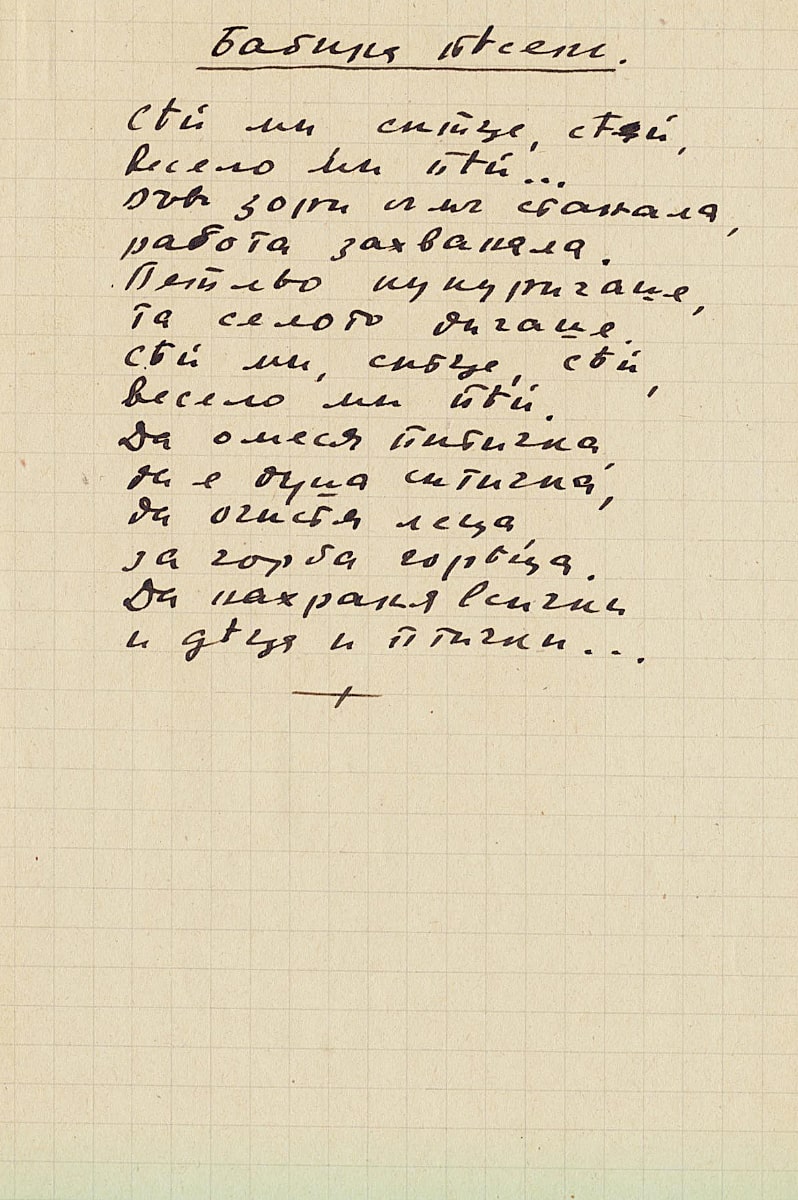 Бабина пѣсень.
Сѣй ми ситце, сѣй,
весело ми пѣй...
въ зори стanaла,
работа захванала.
Петльо кукуригаше,
та селото дигаше.
Сѣй ми, ситце, сѣй,
весело ми пѣй.
Да омеся питичка,
да е душа ситичка,
да очистя леща,
за чорба гореща.
Да нахраня всички
и дѣца и птички...